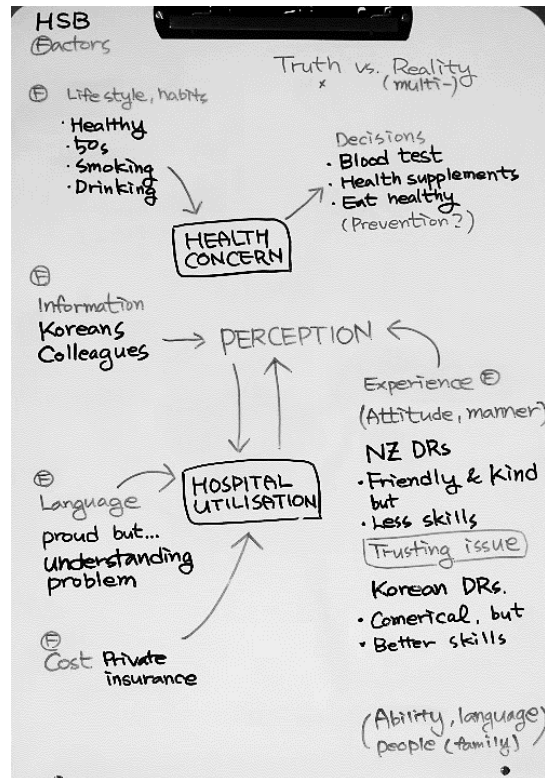 HSB
Ⓕactors
Truth vs. Reality
x
(multi-)
Ⓕ Lifestyle, habits
· Healthy
· 50s
· Smoking
· Drinking
Decisions
· Blood test
· Health supplements
· Eat healthy
(Prevention?)
HEALTH
CONCERN
Ⓕ
Information
Koreans
Colleagues
PERCEPTION
Experience Ⓔ
(Attitude, manner)
NZ DRs
· Friendly & Kind
but
· Less skills
Trusting issue
Korean DRs.
· Comerical, but
· Better skills
HOSPITAL
UTILISATION
Ⓕ
Language
proud but...
understanding
problem
Ⓕ
Cost Private
insurance
(Ability, language
people (family))